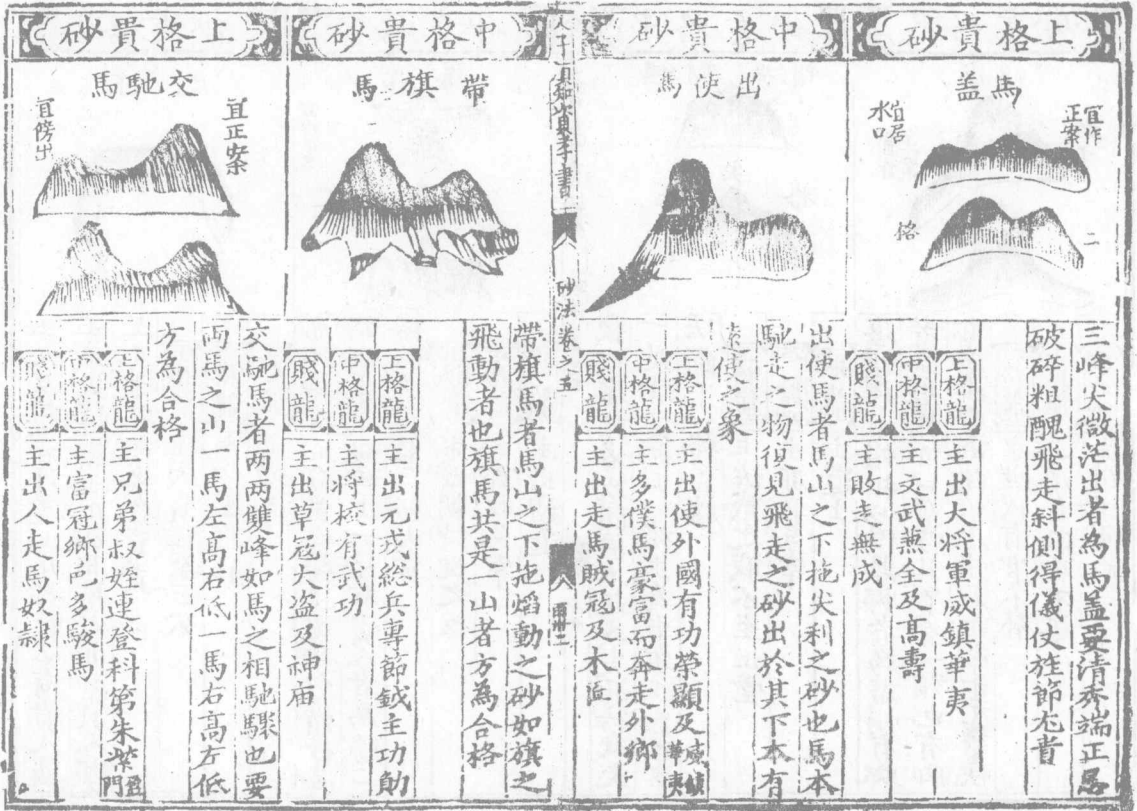 上格貴砂
馬盖
宜作正案
宜居水口
二
格
三峰尖微茫出者為馬盖要清秀端正忌
破碎粗醜飛走斜側得儀仗旌節尤貴
上格龍 主出大将軍威鎮華夷
中格龍 主文武兼全及高壽
賤龍 主敗走無成
中格貴砂
出使馬
出使馬者馬山之下拖尖利之砂也馬本
馳走之物復見飛走之砂出於其下本有
使之象
上格龍 主出使外國有功榮顯及威鎮華夷
中格龍 主多僕馬豪富而奔走外鄉
賤龍 主出走馬賊冦及木
砂法卷之五
中格貴砂
帶旗馬
帶旗馬者馬山之下拖熖動之砂如旗之
飛動者也旗馬共是一山者方為合格
上格龍 主出元戎総兵專節鉞主功勛
中格龍 主将校有武功
賤龍 主出草冦大盗及神庙
上格貴砂
交馳馬
宜正案
宜傍出
交馳馬者两两雙峰如馬之相馳驟也要
両馬之山一馬左高右低一馬右高左低
方為合格
上格龍 主兄弟叔姪連登科第朱紫盈門
中格龍 主富冠鄉邑多駿馬
賤龍 主出人走馬奴隸